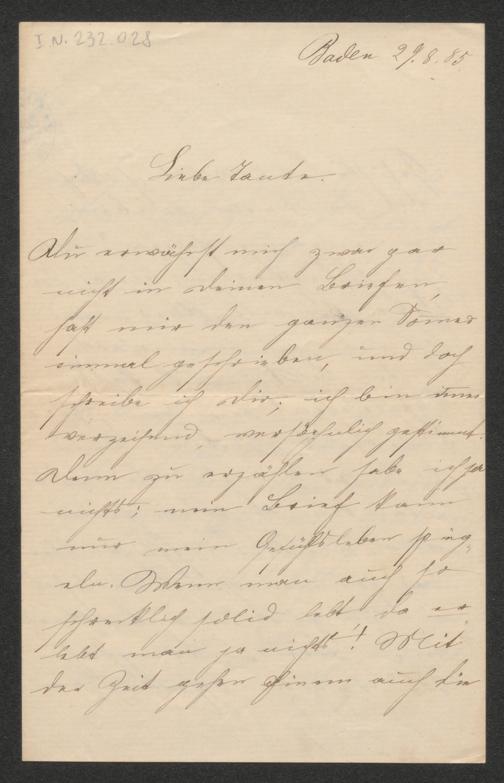 I.N. 232.028
Baden 29.8.85
Liebe Tante.
Du erwähnst mich zwar gar
nicht in Deinen Briefen,
hast mir den ganzen Somer
einmal geschrieben, und doch
schreibe ich Dir; ich bin immer
verzeihend, versöhnlich gestimmt.
Denn zu erzählen habe ich ja
nichts; mein Brief kann
nur mein Gefühlsleben spieg-
eln. Wenn man auch so
schrecklich solid lebt da er-
lebt man ja nichts! Mit
der Zeit gehen Einem auch die